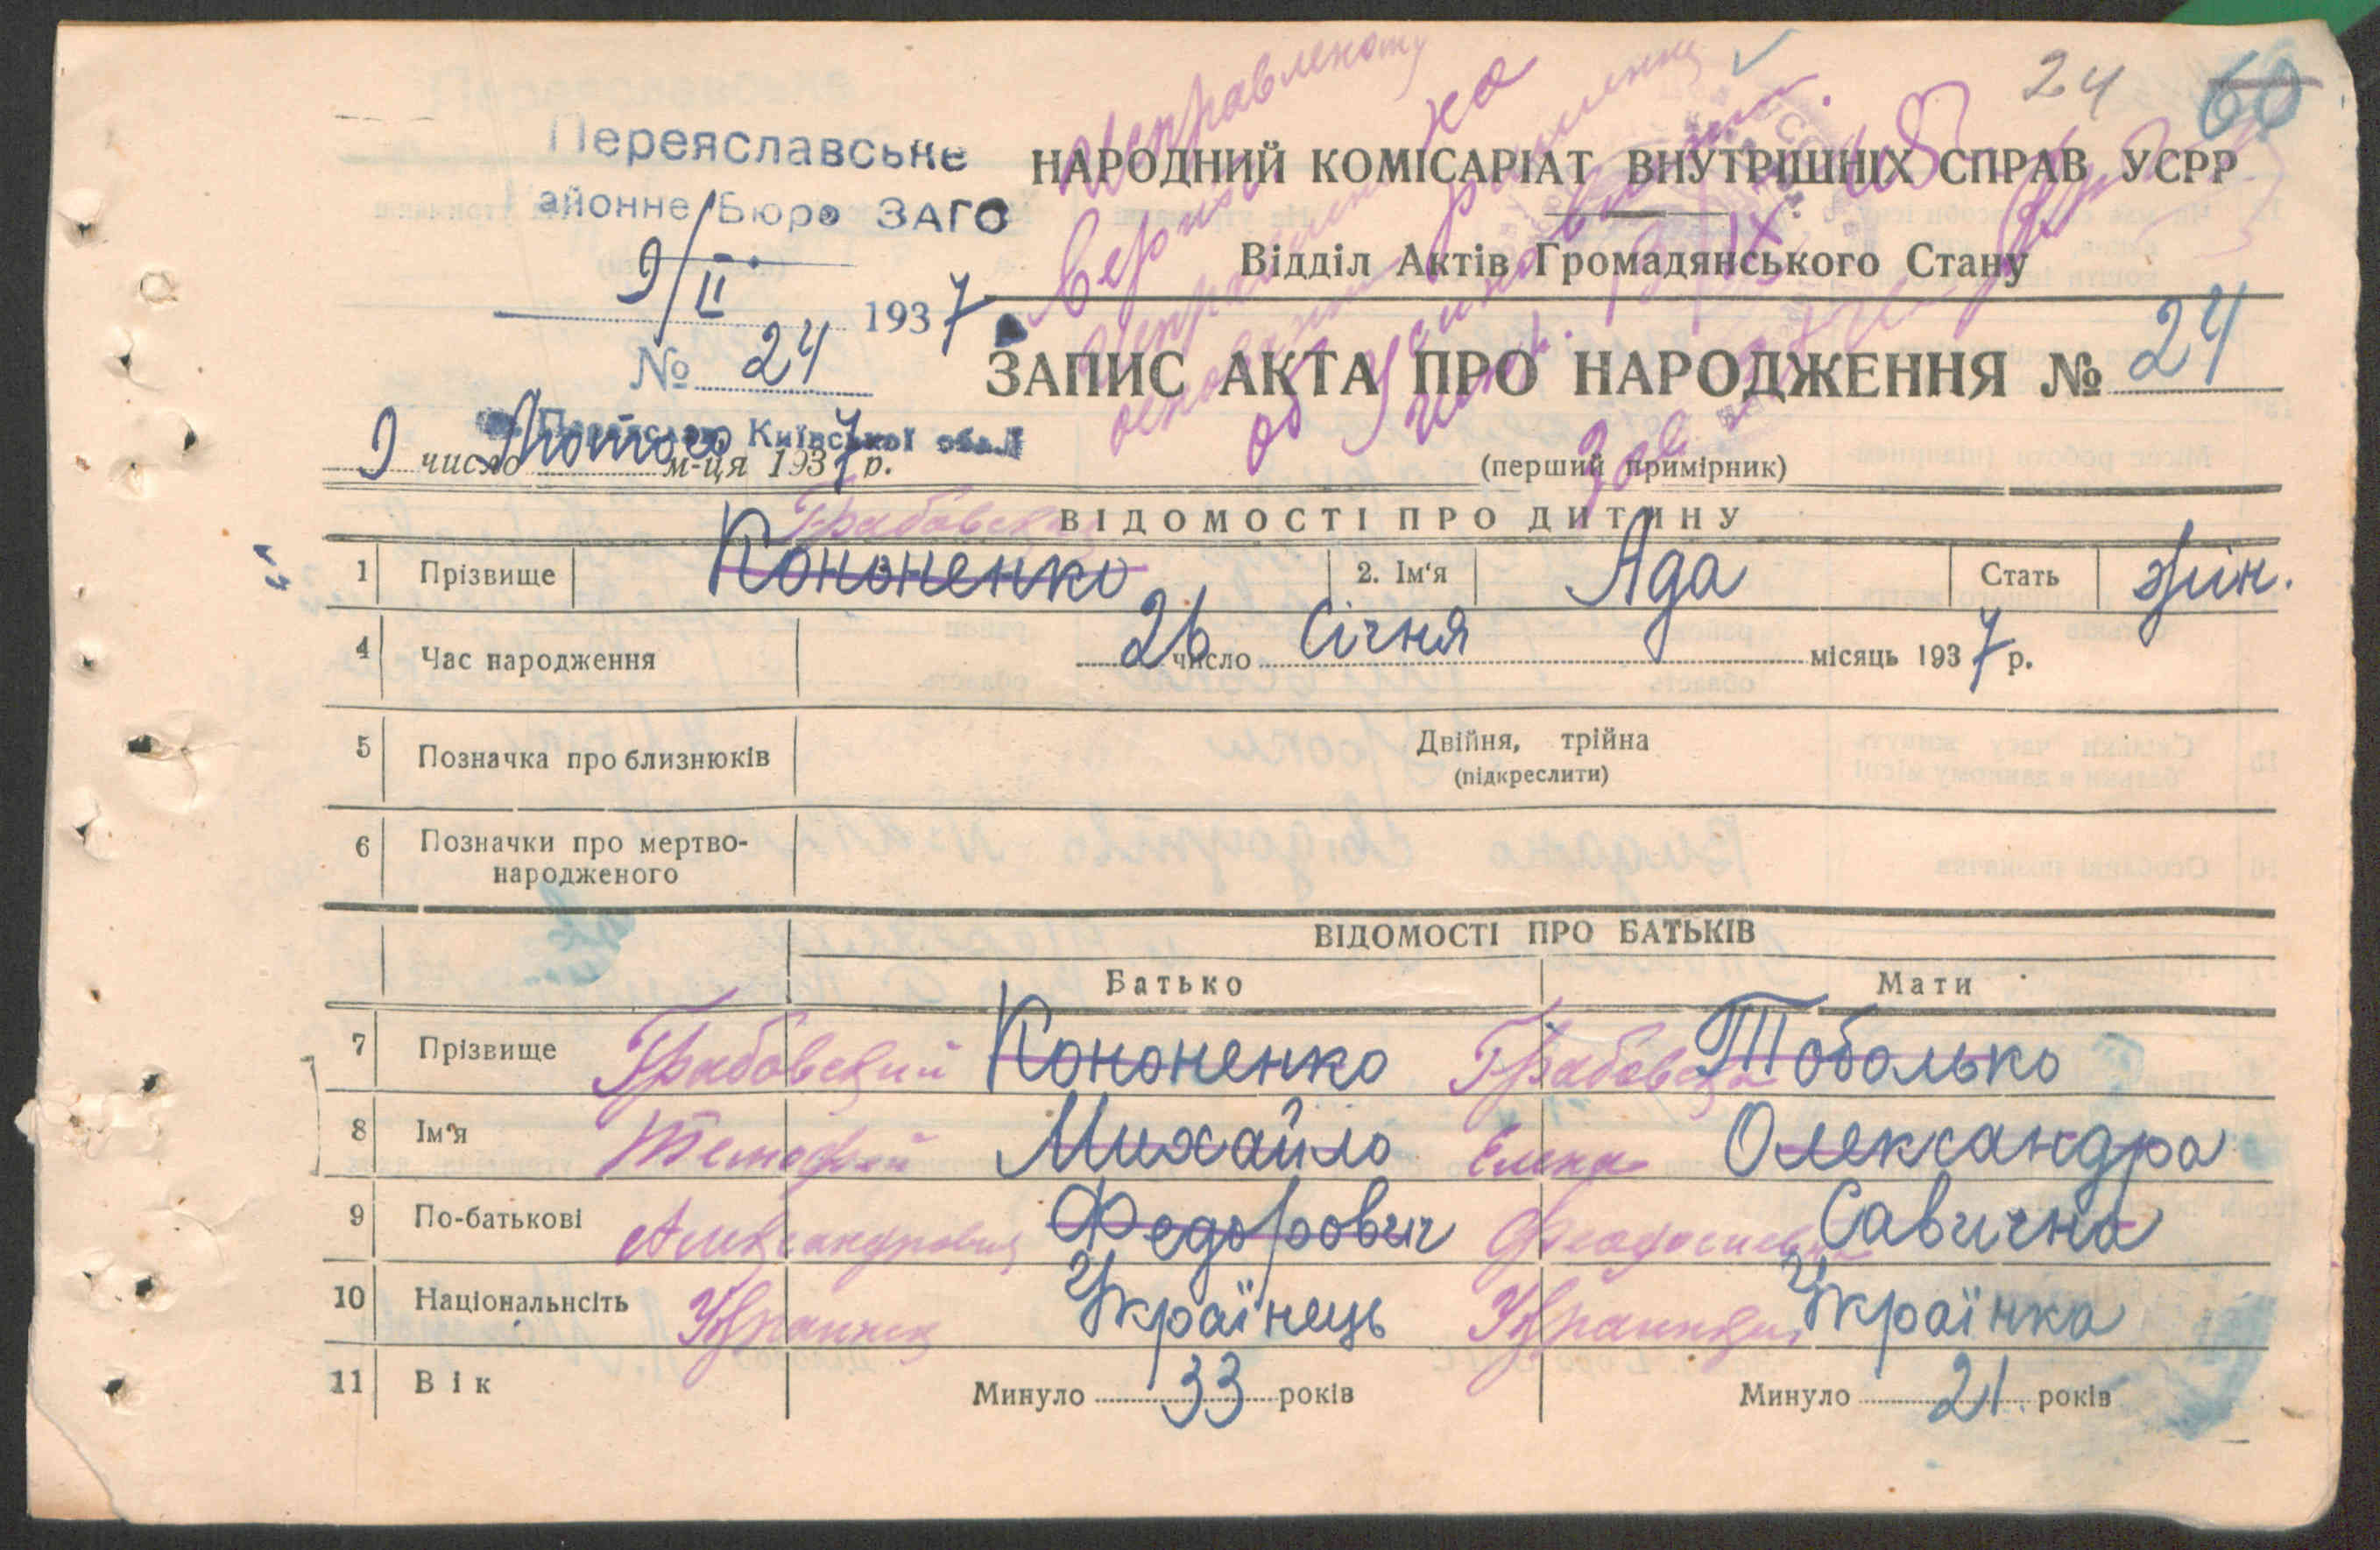 24 60
Переяславське
айонне Бюро ЗАГС
9/II 1937
№ 24
Исправленому
на
НАРОДНИЙ КОМІСАРІАТ ВНУТРІШНІХ СПРАВ УСРР
Відділ Актів Громадянського Стану
ЗАПИС АКТА ПРО НАРОДЖЕННЯ № 24
Київської обл
9 число Лютого м-ця 1937 р.
(перший примірник)
Грабовская
ВІДОМОСТІ ПРО ДИТИНУ
1 Прізвище Кононенко 2. Ім'я Ада Стать жін.
4 Час народження 26 число Січня місяць 1937 р.
5 Позначка про близнюків Двійня, трійна
(підкреслити)
6 Позначки про мертво-
народженого
ВІДОМОСТІ ПРО БАТЬКІВ
Батько Мати
7 Прізвище Грабовский Кононенко Грабовская Тоболько
8 Ім'я Тимофей Михайло Елена Олександра
9 По-батькові Александрович Федорович Феодосиевна Савична
10 Національнсіть Украинец Українець Украинка Українка
11 Вік Минуло 33 років Минуло 21 років